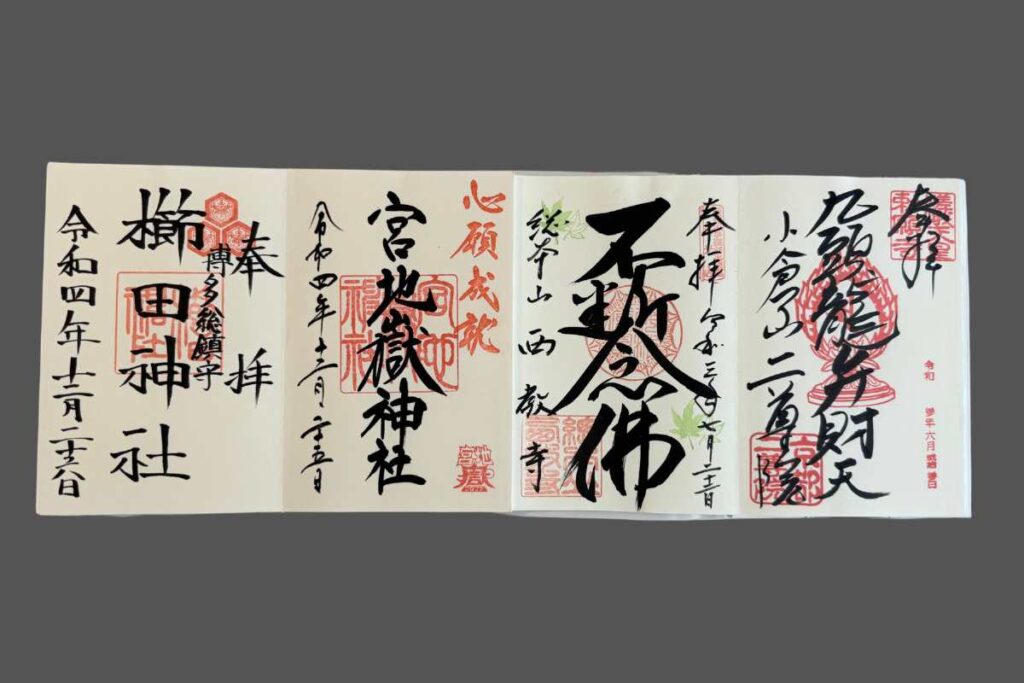 参拝
九頭龍弁財天
小倉山 二尊院
奉拝 令和三年七月二十二日
不断念佛
総本山 西教寺
心願成就
宮地嶽神社
令和四年十二月二十五日
奉拝
博多総鎮守
櫛田神社
令和四年十二月二十六日